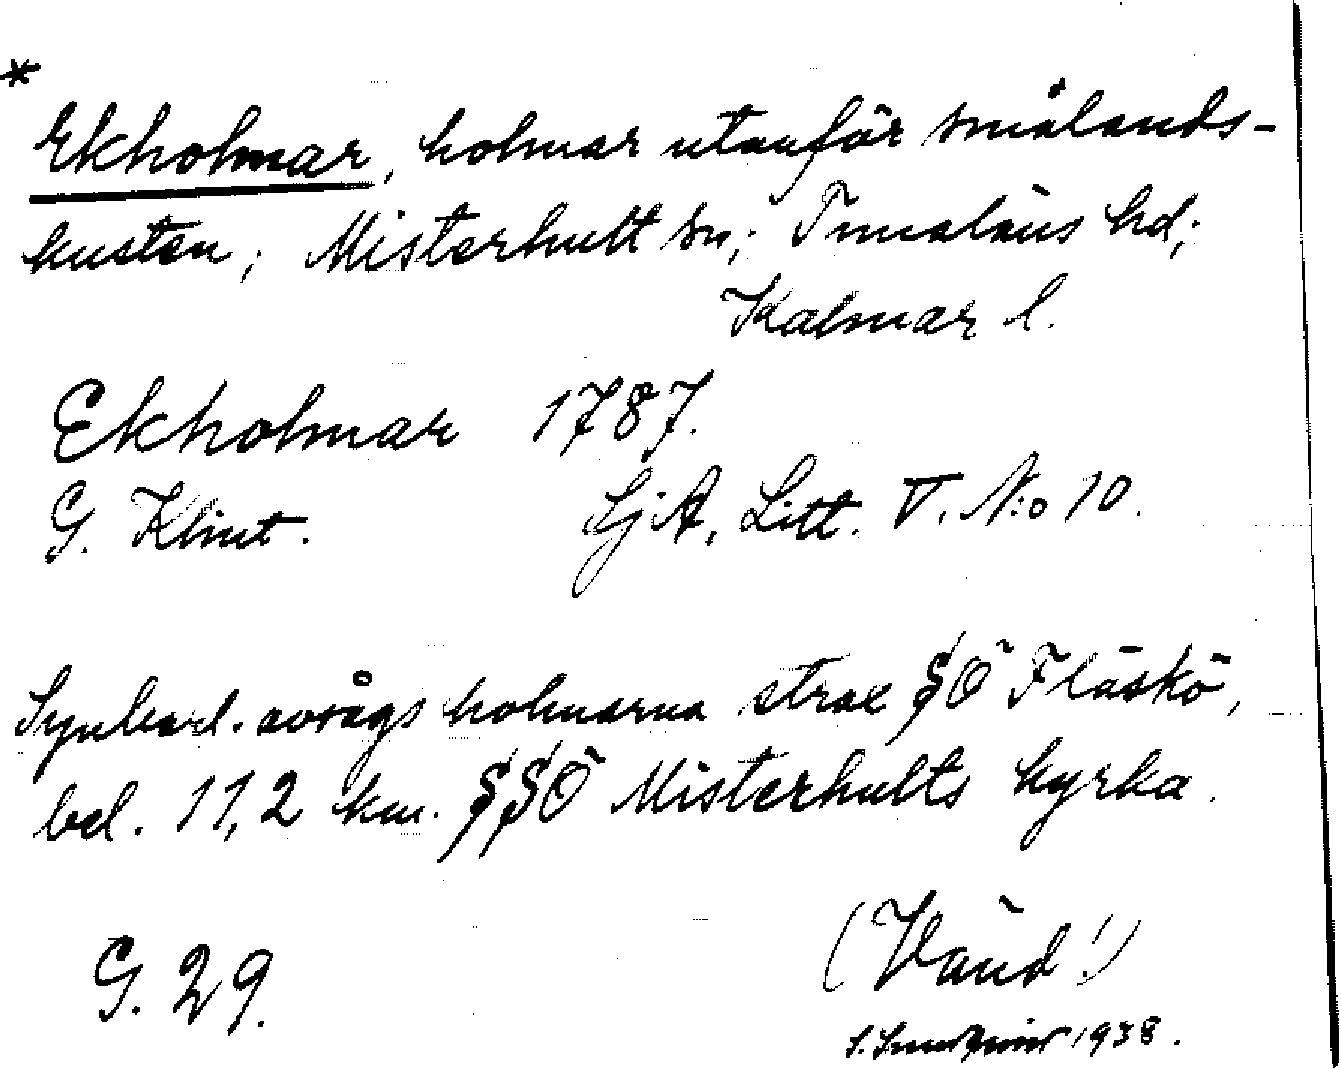 *
Ekholmar, holmar utanför smålands-
kusten; Misterhult sn; Tunaläns hd;
Kalmar l.
Ekholmar 1787.
G. Klint. SjA, Litt. V. N:o 10.
Synbarl. avsågs holmarna strax SÖ Fläskö,
bel. 11,2 km. SSÖ Misterhults kyrka.
(Vänd!)
G. 29. 1938.